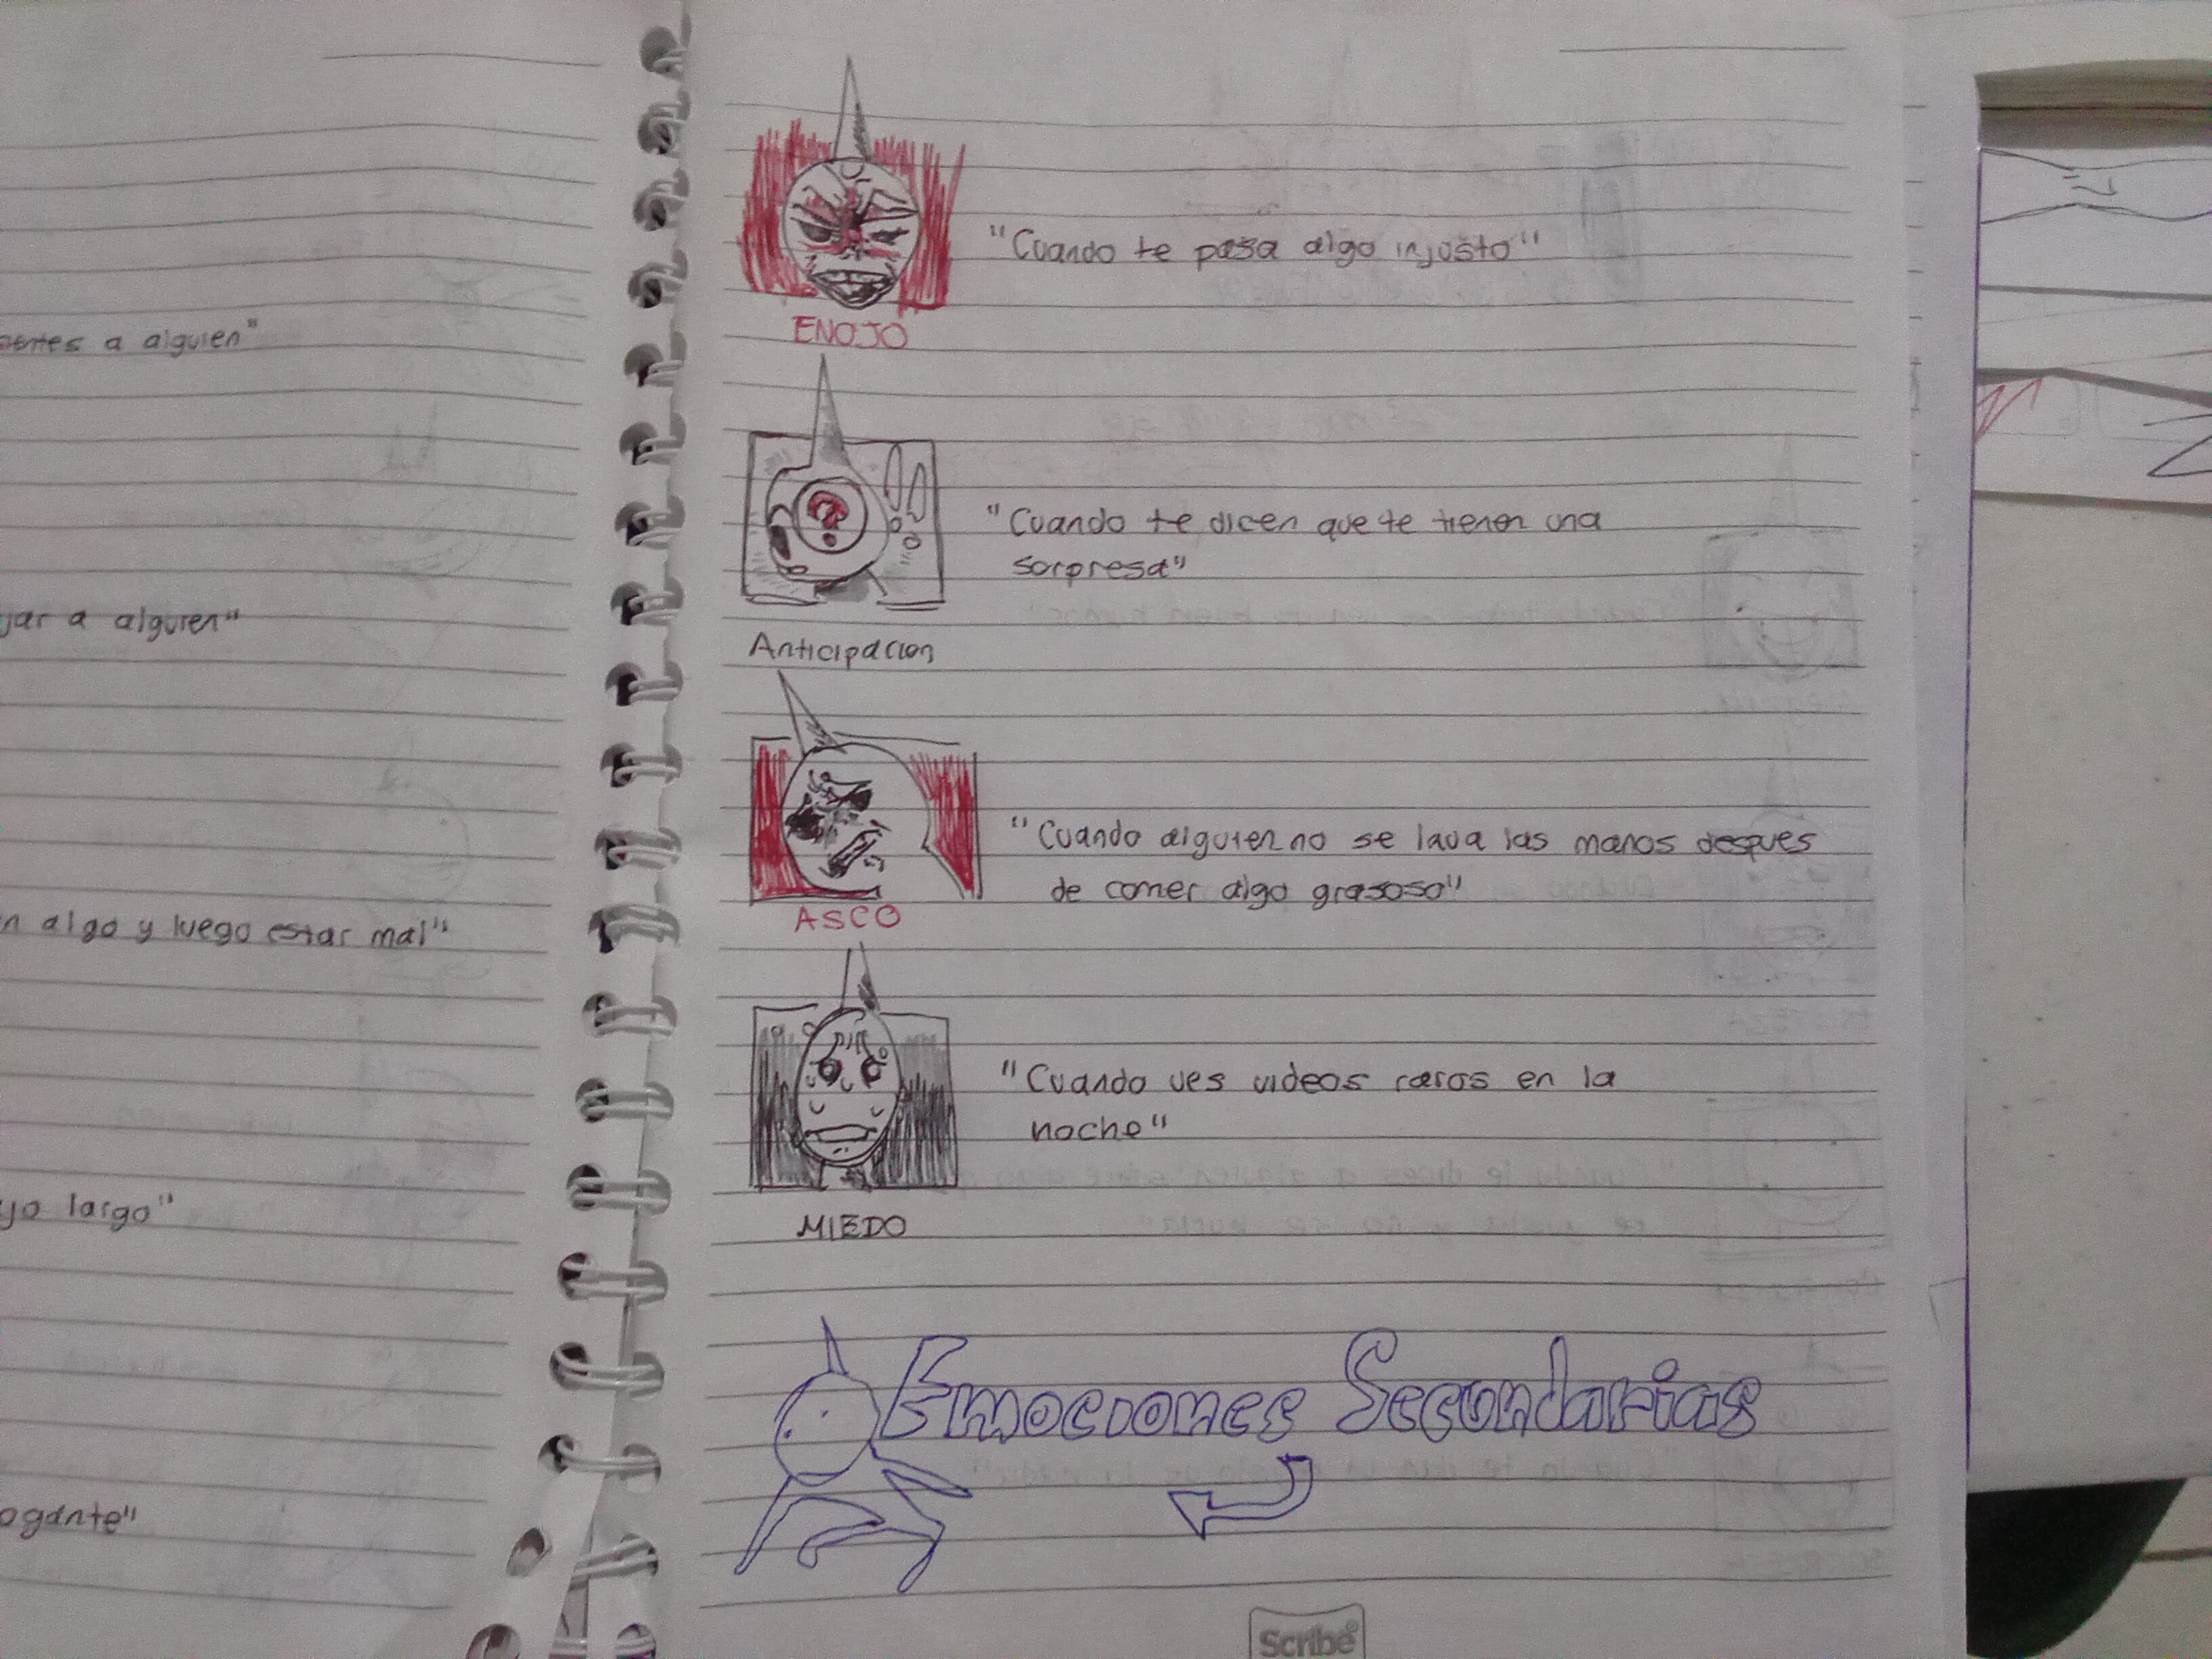 entes a alguien"
jar a alguien"
n algo y luego estar mal"
yo largo"
ogante"
"Cuando te pasa algo injusto"
ENOJO
?
"Cuando te dicen que te tienen una
sorpresa"
Anticipacion
"Cuando alguien no se lava las manos despues
de comer algo grasoso"
ASCO
"Cuando ves videos raros en la
noche"
MIEDO
Emociones Secundarias
Scribe